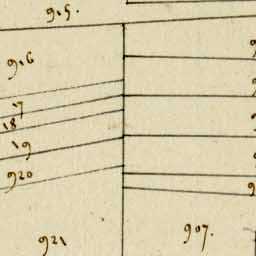 915.
916
17
18
19
920
921
907.